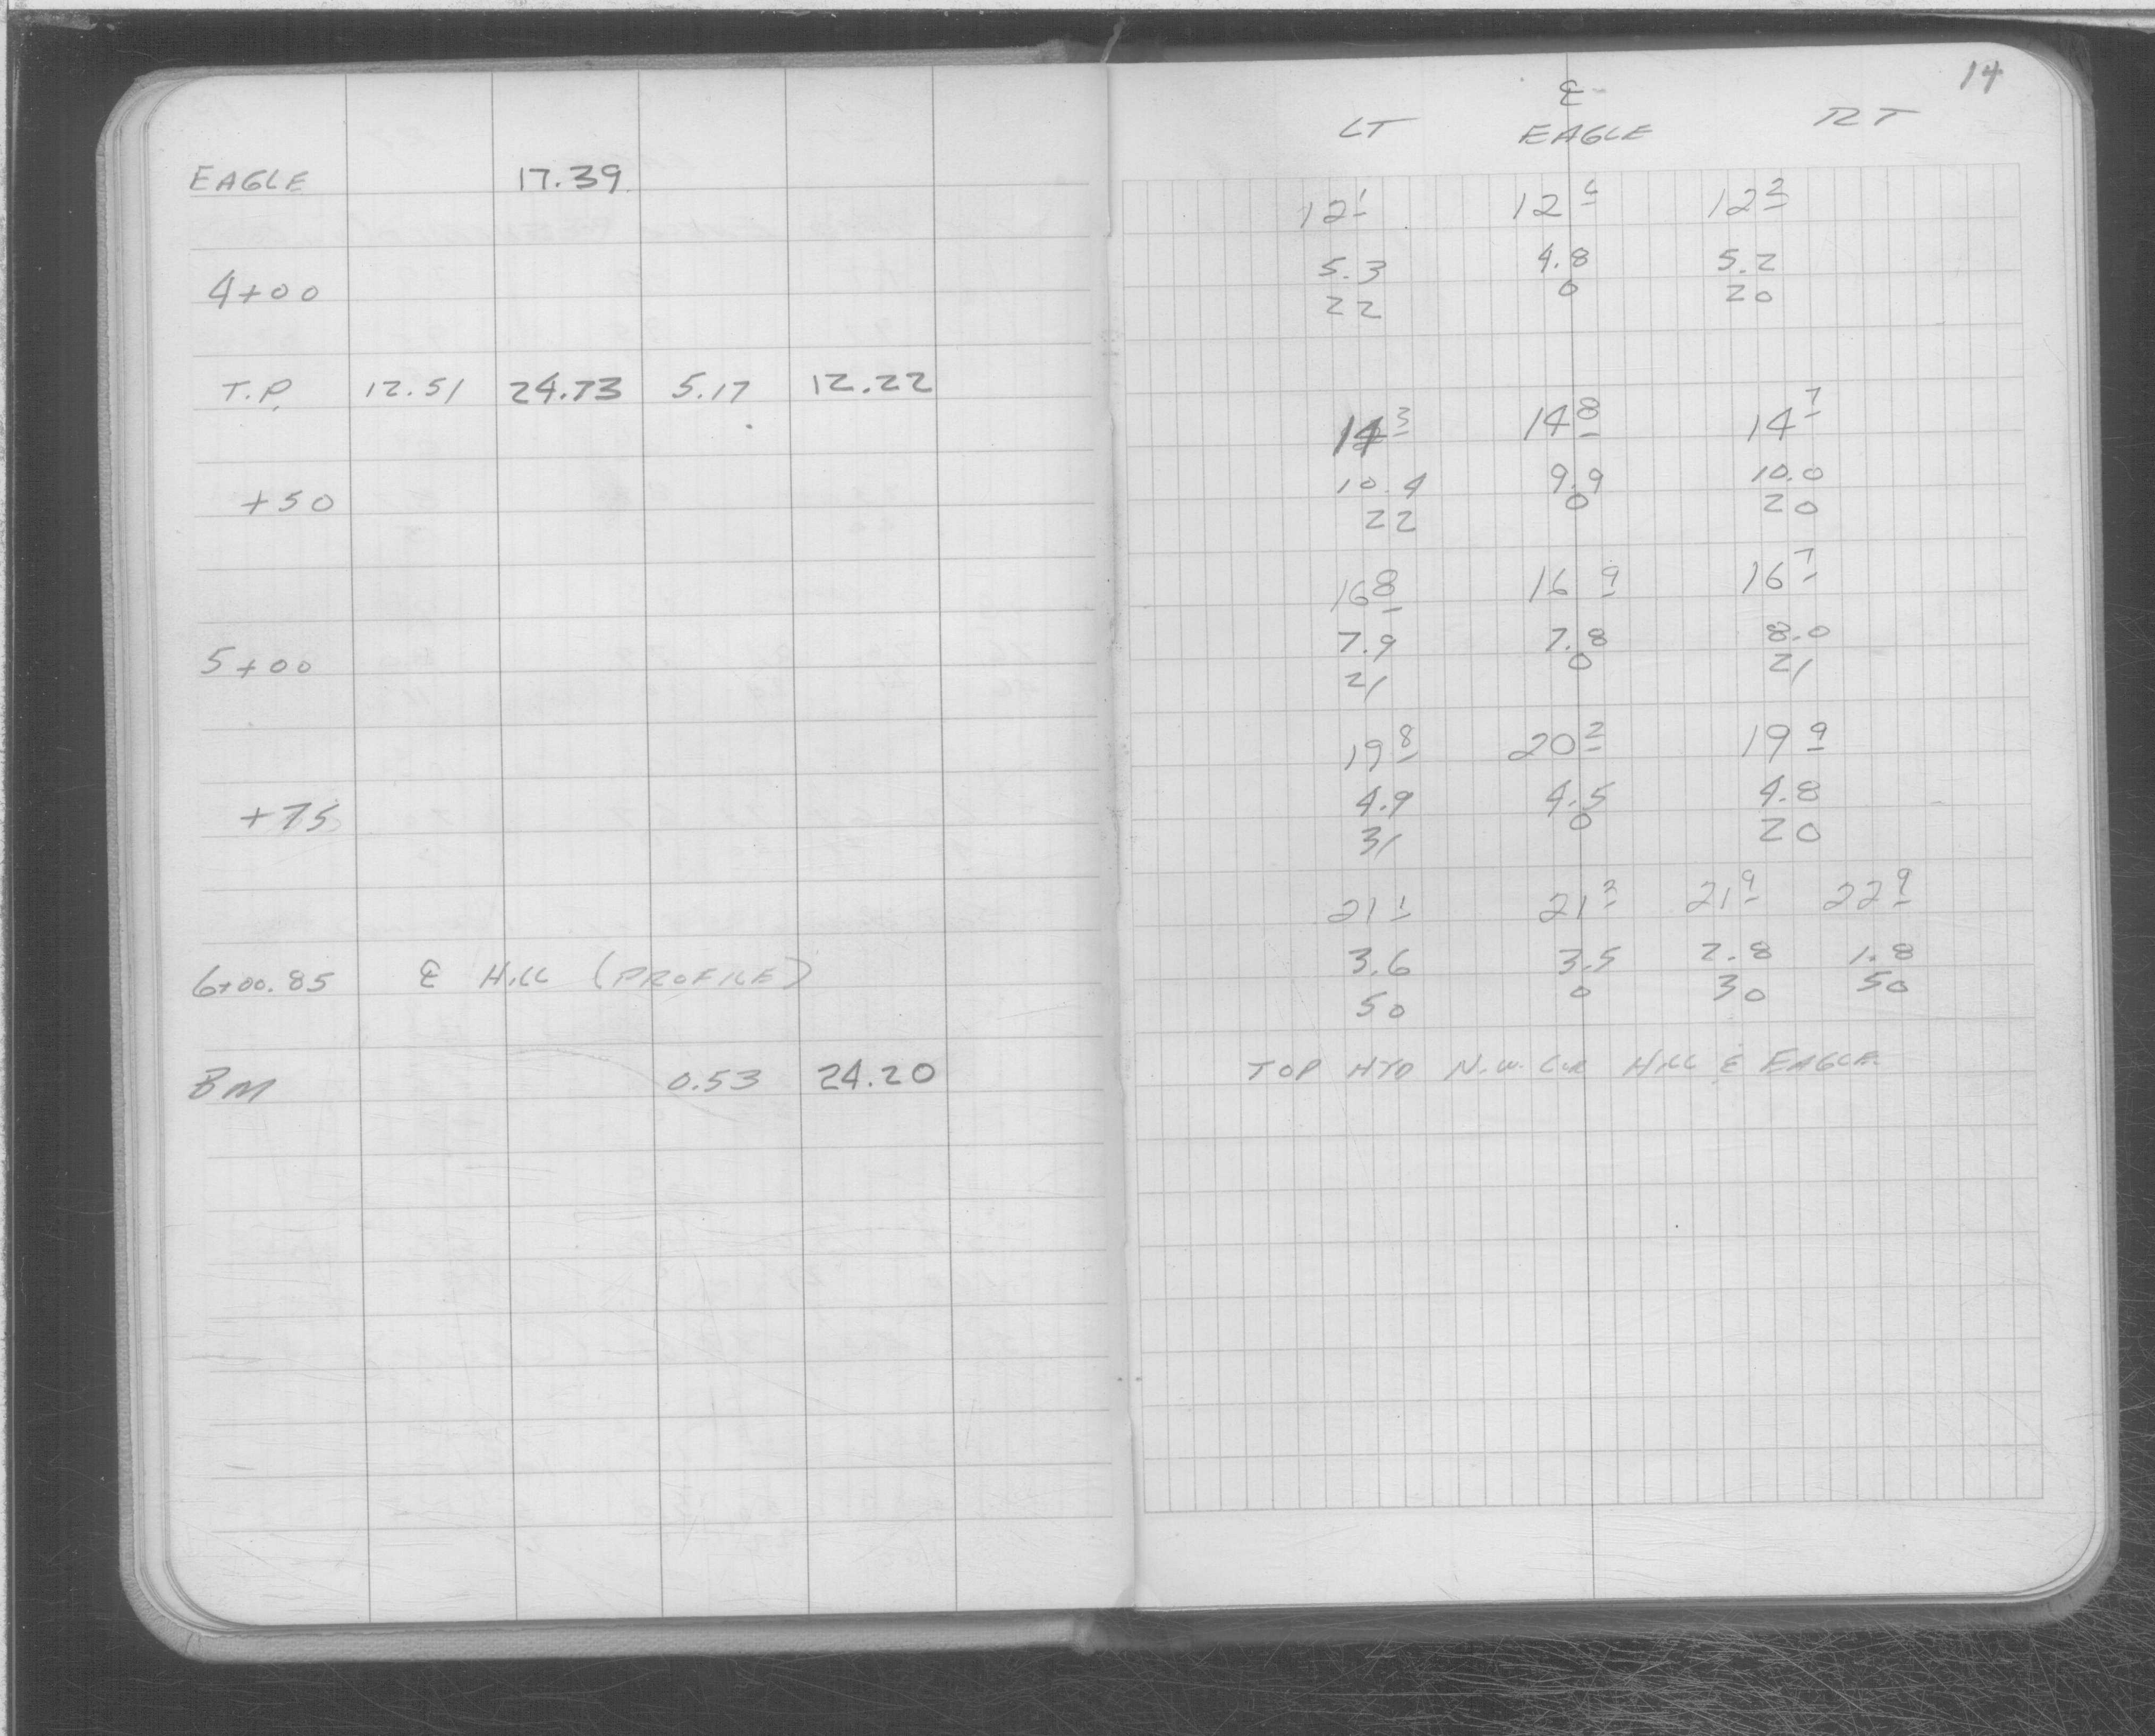 EAGLE 17.39
4+00
T.P. 12.51 24.73 5.17 12.22
+50
5+00
+75
6+00.85 ℄ HILL (PROFILE)
BM 0.53 24.20
14
℄
LT EAGLE RT
12 1 12 6 12 2
5.3 4.8 5.2
22 0 20
14 3 14 8 14 7
10.4 9.9 10.0
22 0 20
16 8 16 9 16 7
7.9 7.8 8.0
21 0 21
19 8 20 2 19 9
4.9 4.5 4.8
31 0 20
21 1 21 2 21 9 22 9
3.6 3.5 2.8 1.8
50 0 30 50
TOP HYD N.W. COR HILL & EAGLE